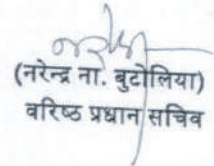 (नरेन्द्र ना. बुटोलिया)
वरिष्ठ प्रधान सचिव